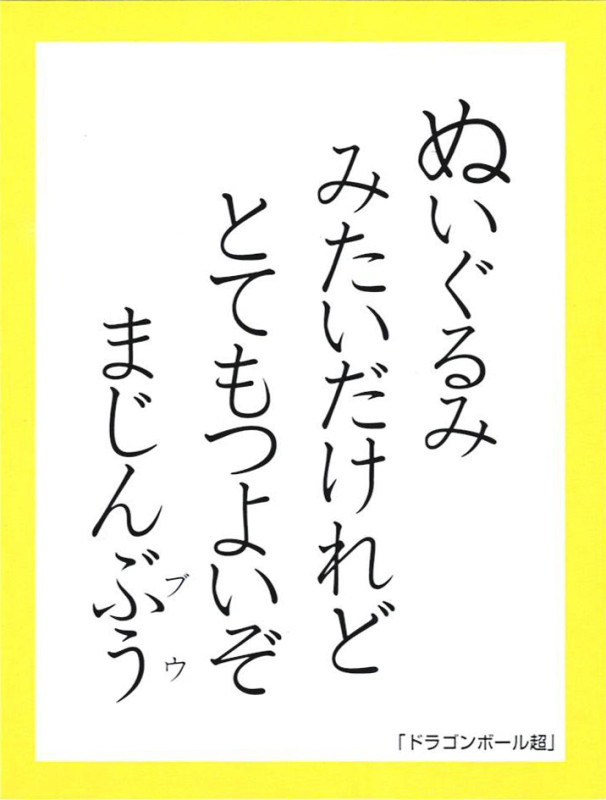 ぬいぐるみ
みたいだけれど
とてもつよいぞ
まじんぶう
ブウ
「ドラゴンボール超」